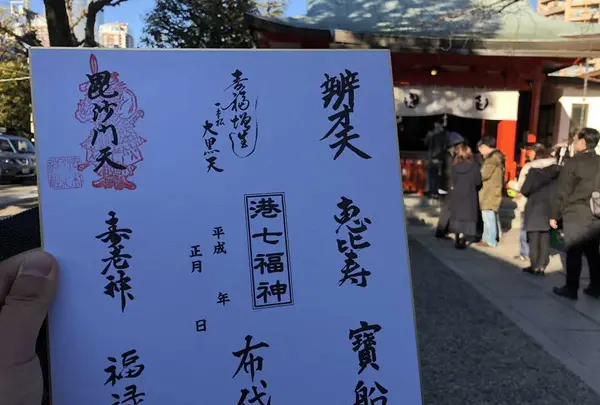 辨才天
恵比寿
寶船
福増進
大黒天
港七福神
平成 年
正月 日
布袋
毘沙門天
寿老神
福禄